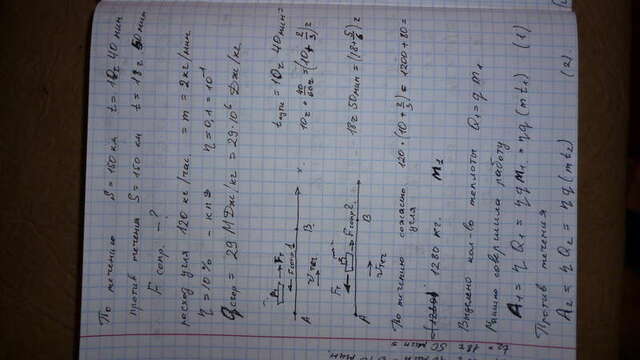 По течению S = 150 км t = 10ч 40 мин
против течения S = 150 км t = 18ч 50 мин
F сопр. - ?
расход угля 120 кг/час = m = 2 кг/мин
η = 10% - кпд η = 0,1 = 10⁻¹
qсгор = 29 МДж/кг = 29·10⁶ Дж/кг
tпути = 10ч 40 мин =
10ч + 40/60 ч = (10 + 2/3) ч
Fт
Fсопр1
Vтеч
A B x
18ч 50 мин = (18 + 5/6) ч
Fт Fсопр2
A B
Vтеч
По течению сожгли 120·(10 + 2/3) = 1200 + 80 =
угля
1280 кг. m₁
Выделено кол-во теплоты Q₁ = q m₁
Машина совершила работу
A₁ = η Q₁ = η q m₁ = η q (m t₁) (1)
Против течения
A₂ = η Q₂ = η q (m t₂) (2)
t₂ = 18ч 50 мин =